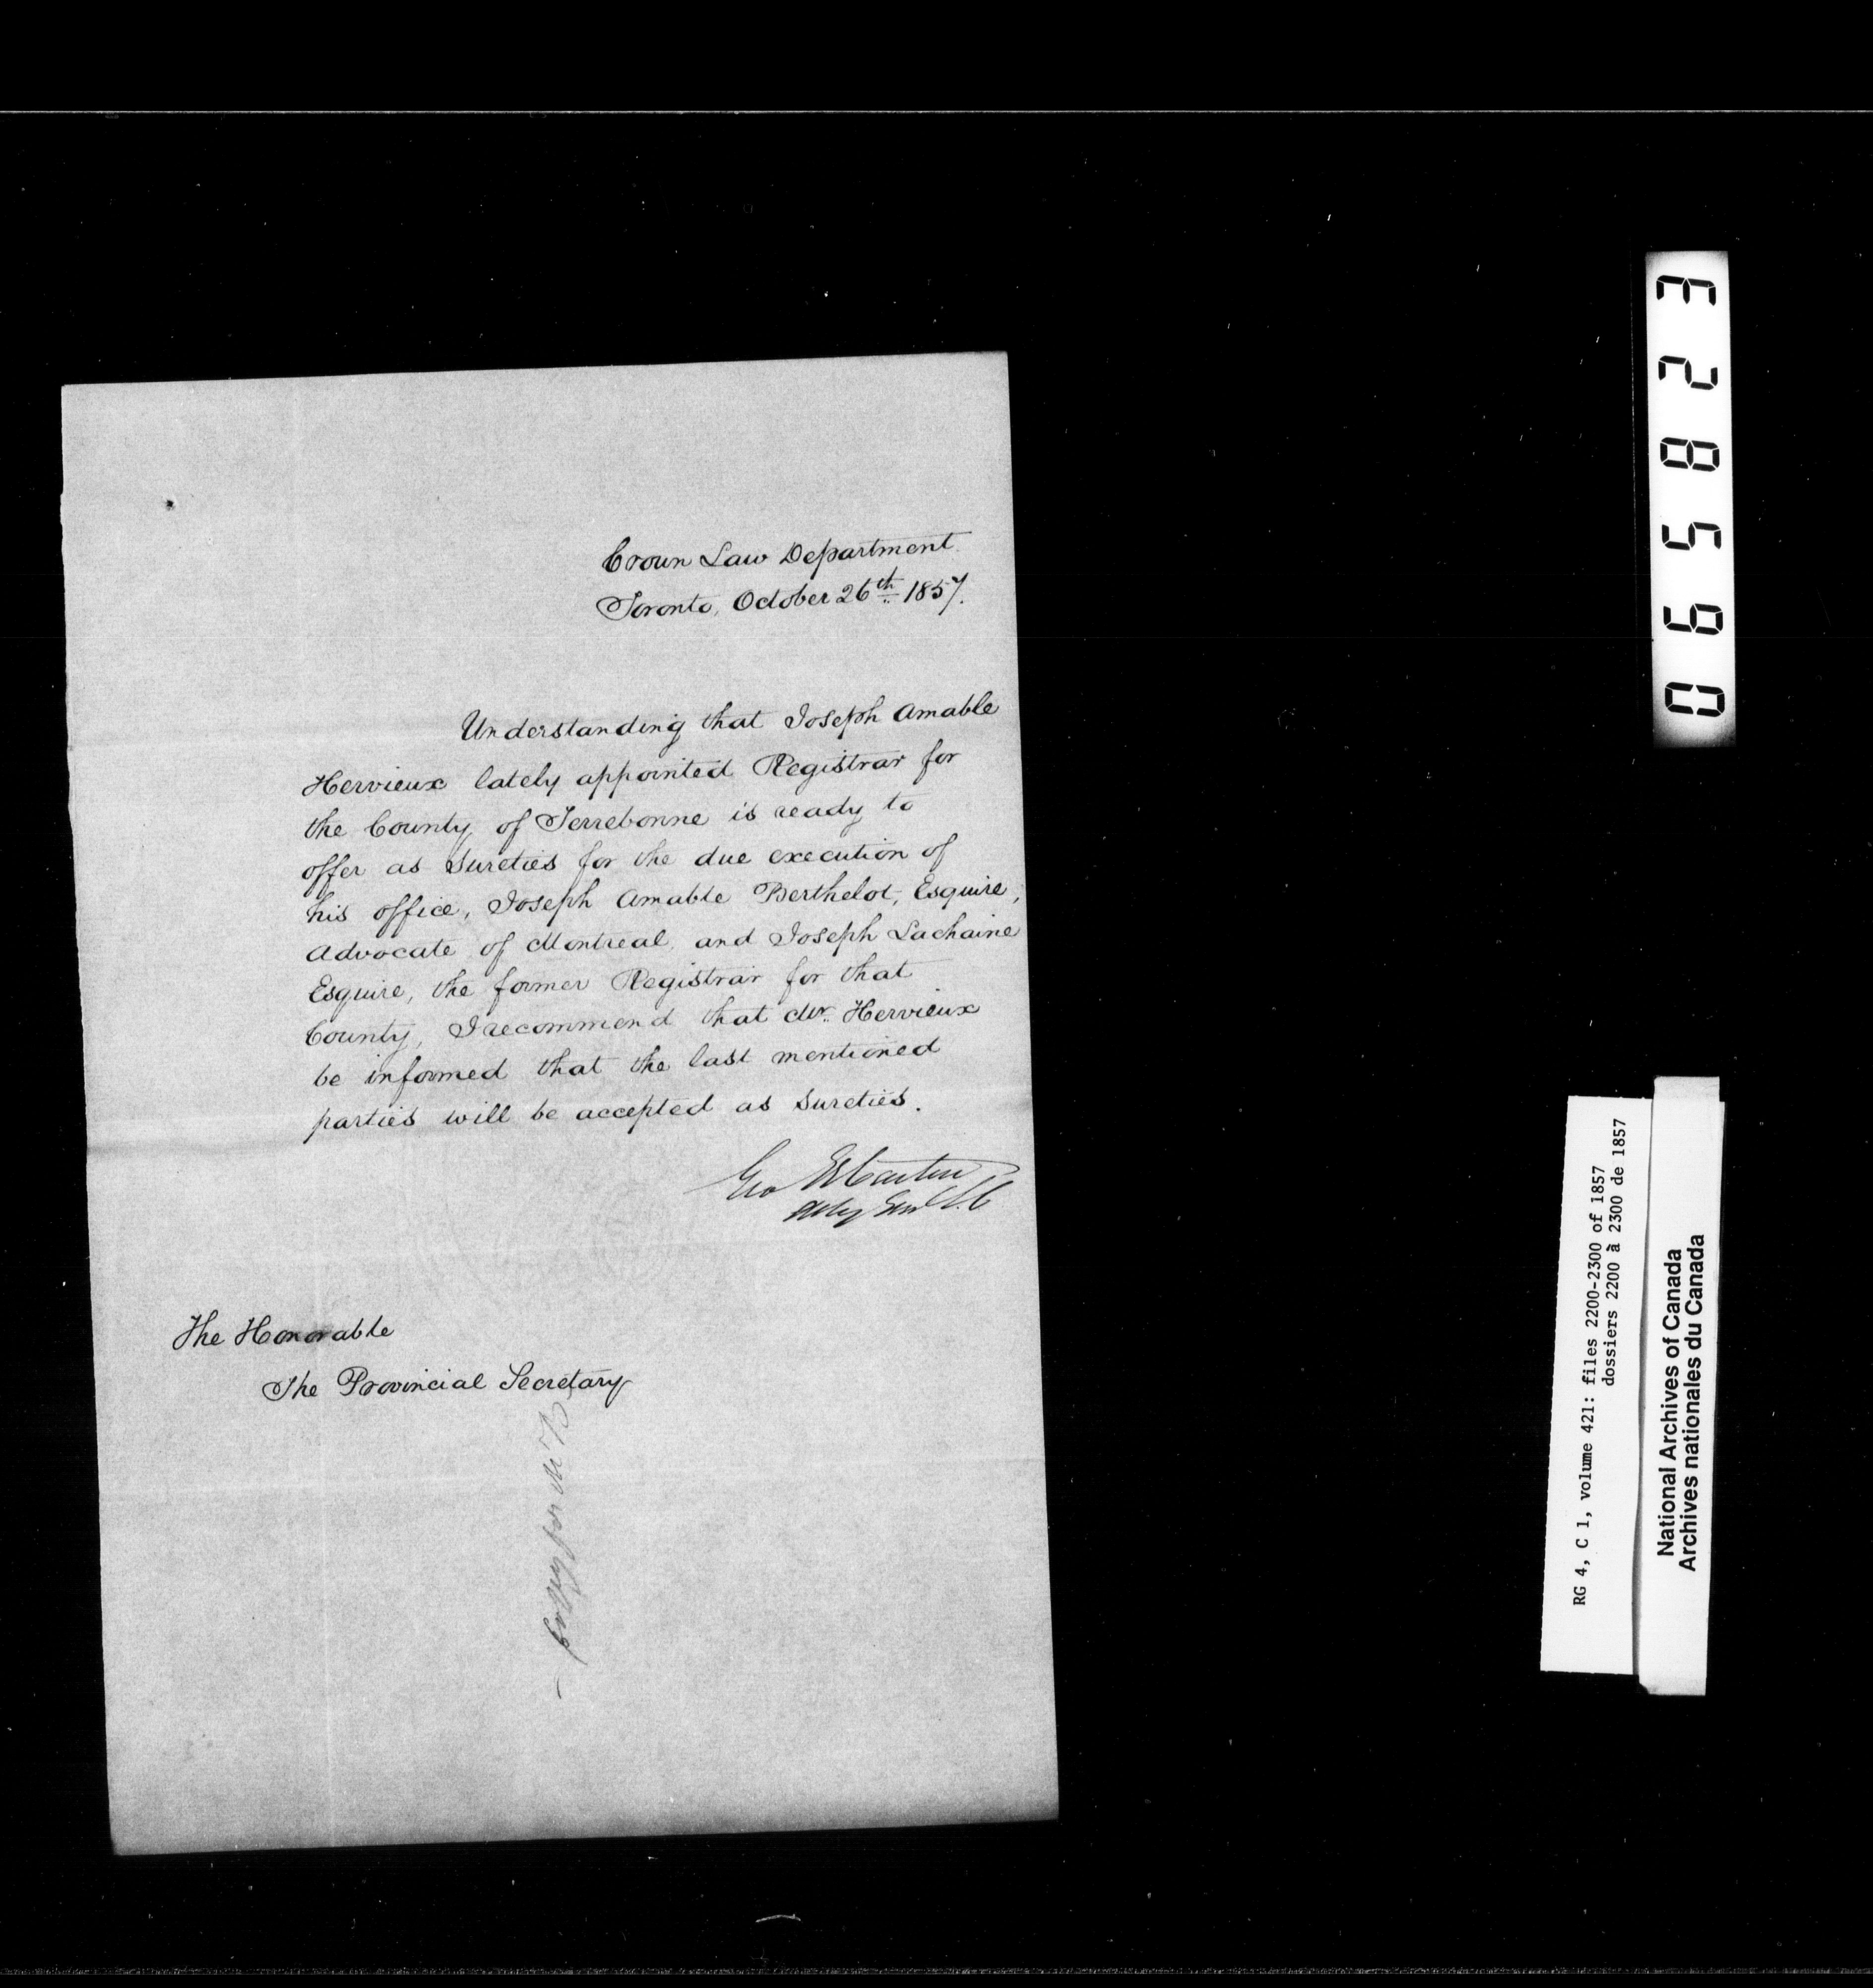 Crown Law Department
Toronto, October 26th 1857.
Understanding that Joseph Amable
Hervieux lately appointed Registrar for
the County of Terrebonne is ready to
offer as sureties for the due execution of
his office, Joseph Amable Berthelot, Esquire,
Advocate of Montreal, and Joseph Lachaine
Esquire, the former Registrar for that
County, I recommend that Mr. Hervieux
be informed that the last mentioned
parties will be accepted as sureties.
Geo Et Cartier
Atty Genl L.C
The Honorable
The Provincial Secretary
065823
RG 4, C 1, volume 421: files 2200-2300 of 1857
dossiers 2200 à 2300 de 1857
National Archives of Canada
Archives nationales du Canada